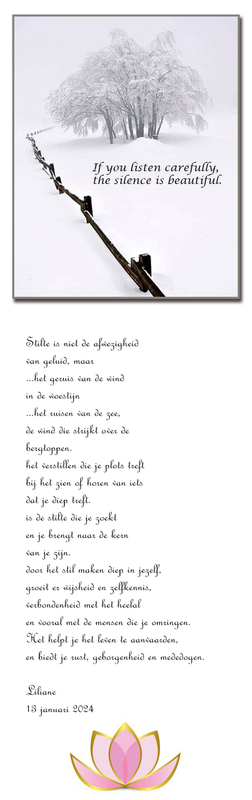 If you listen carefully,
the silence is beautiful.
Stilte is niet de afwezigheid
van geluid, maar
...het geruis van de wind
in de woestijn
...het ruisen van de zee,
de wind die strijkt over de
bergtoppen.
het verstillen die je plots treft
bij het zien of horen van iets
dat je diep treft.
is de stilte die je zoekt
en je brengt naar de kern
van je zijn.
door het stil maken diep in jezelf,
groeit er wijsheid en zelfkennis,
verbondenheid met het heelal
en vooral met de mensen die je omringen.
Het helpt je het leven te aanvaarden,
en biedt je rust, geborgenheid en mededogen.
Liliane
13 januari 2024